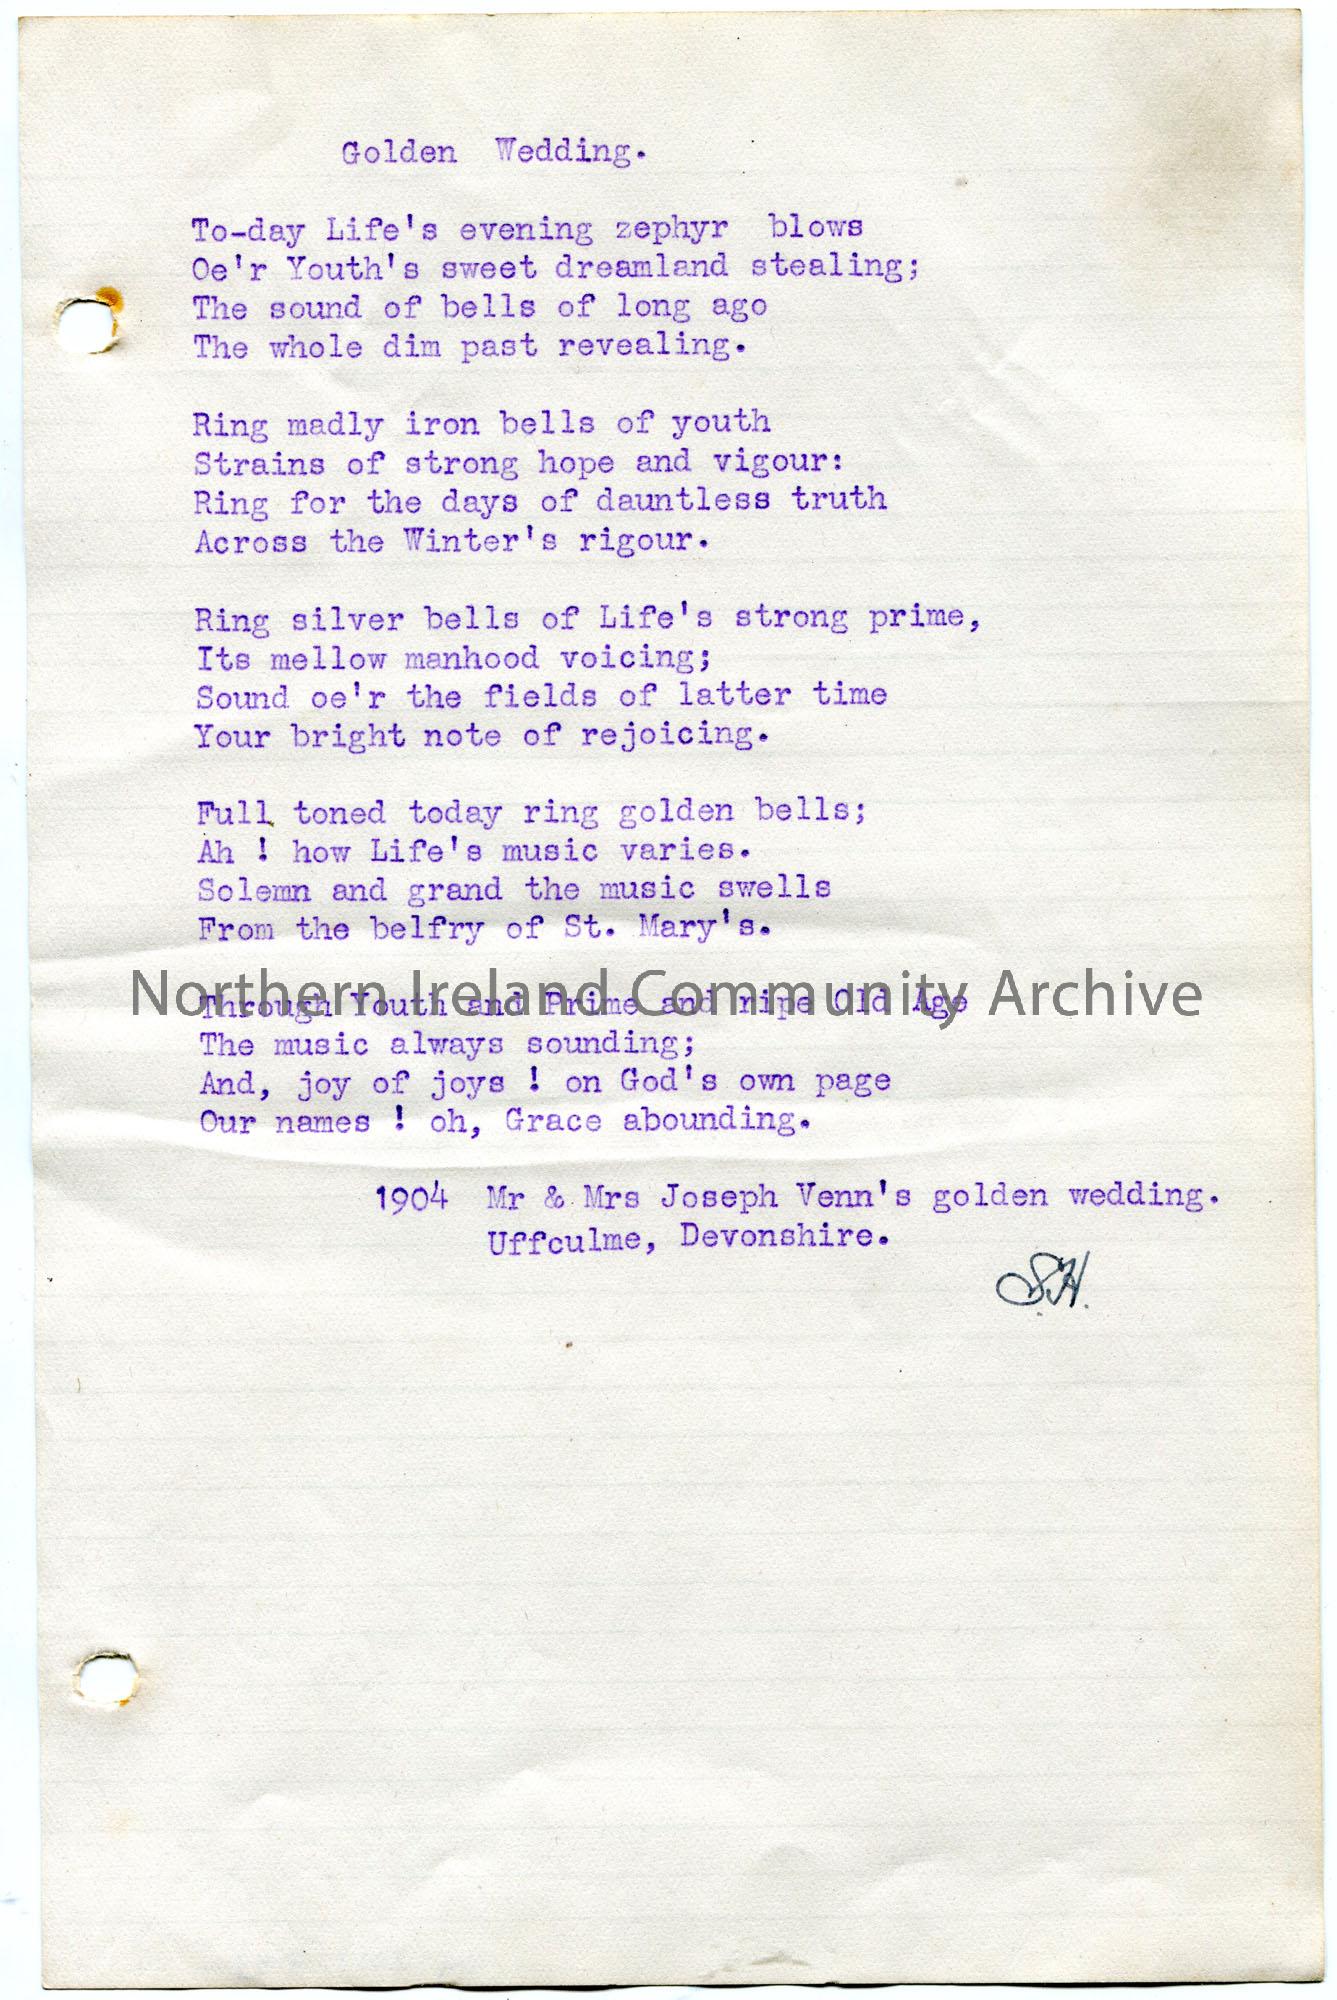 Golden Wedding.
To-day Life's evening zephyr blows
Oe'r Youth's sweet dreamland stealing;
The sound of bells of long ago
The whole dim past revealing.
Ring madly iron bells of youth
Strains of strong hope and vigour:
Ring for the days of dauntless truth
Across the Winter's rigour.
Ring silver bells of Life's strong prime,
Its mellow manhood voicing;
Sound oe'r the fields of latter time
Your bright note of rejoicing.
Full toned today ring golden bells;
Ah ! how Life's music varies.
Solemn and grand the music swells
From the belfry of St. Mary's.
Northern Ireland Community Archive
Through Youth and Prime and ripe Old Age
The music always sounding;
And, joy of joys ! on God's own page
Our names ! oh, Grace abounding.
1904 Mr & Mrs Joseph Venn's golden wedding.
Uffculme, Devonshire.
S.H.